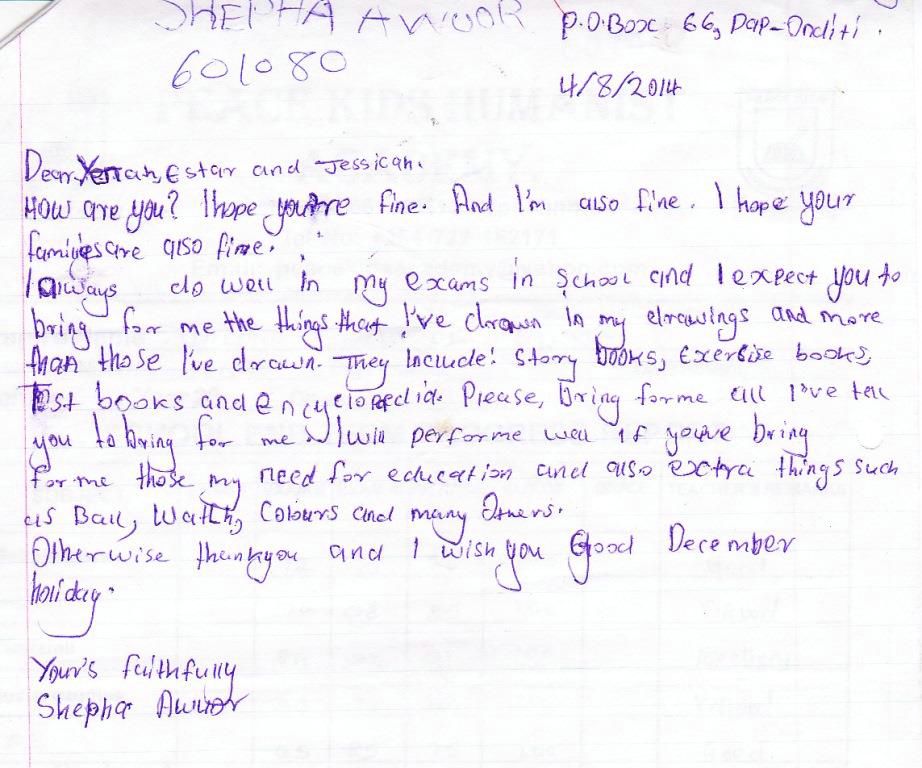 SHEPHA AWUOR
601080
P.O.Box 66, Pap-Onditi.
4/8/2014
Dear Yerrah, Estar and Jessicah.
How are you? I hope you're fine. And I'm also fine. I hope your
families are also fine.
I always do well in my exams in school and I expect you to
bring for me the things that I've drawn in my drawings and more
than those I've drawn. They include: Story books, Exercise books,
Test books and encyclopedia. Please, bring for me all I've tell
you to bring for me. I will performe well if you've bring
for me those my need for education and also extra things such
as Ball, Watch, Colours and many Others.
Otherwise thankyou and I wish you Good December
holiday.
Your's faithfully
Shepha Awuor
PEACE KIDS HUMANIST
ACADEMY